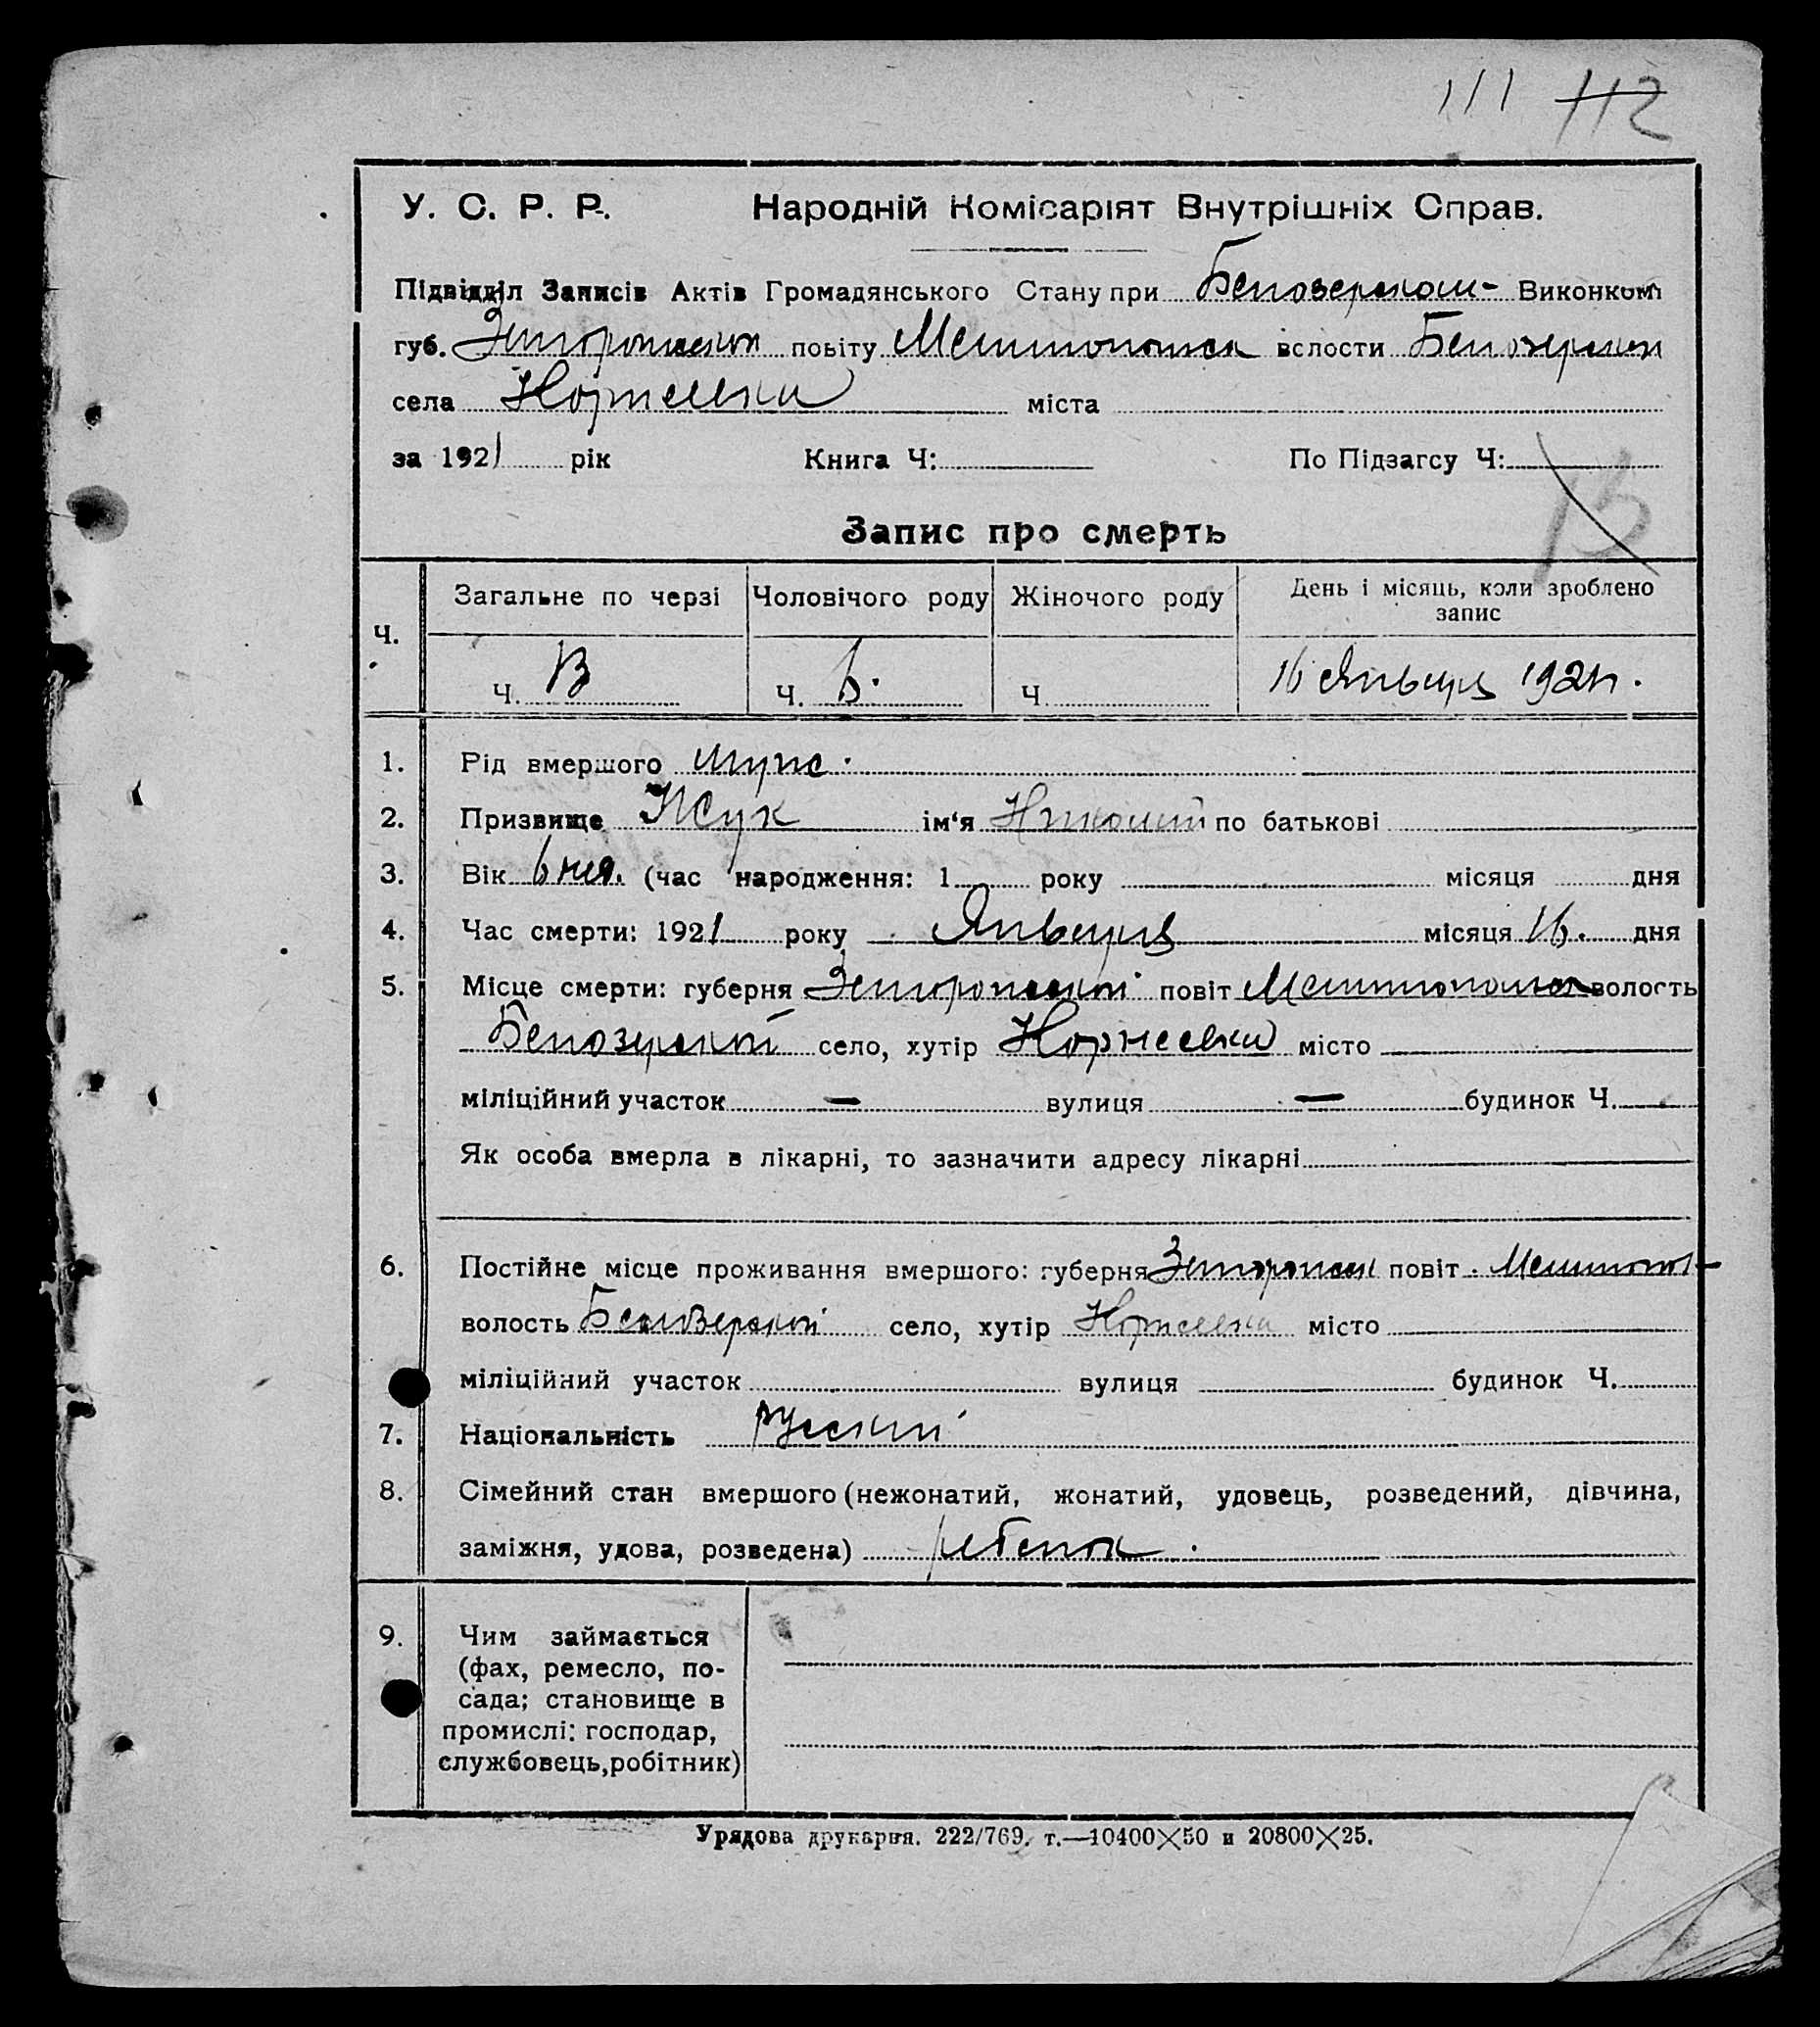 111 112
У. С. Р. Р. Народній Комісаріят Внутрішніх Справ.
Підвідділ Записів Актів Громадянського Стану при Белозерском- Виконкомі
губ. Запорожской повіту Мелитопольск волости Белозерской
села міста
за 1921 рік Книга Ч: По Підзагсу Ч:
Запис про смерть
Ч. Загальне по черзі Чоловічого роду Жіночого роду День і місяць, коли зроблено
запис
Ч. 13 Ч. Ч. 16 Января 1921 г.
1. Рід вмершого муж.
2. Призвище Жук ім'я Николай по батькові
3. Вік 6 нед. (час народження: 1 року місяця дня
4. Час смерти: 1921 року Января місяця 16. дня
5. Місце смерти: губерня Запорожской повіт Мелитопольск волость
Белозерской село, хутір місто
міліційний участок — вулиця — будинок Ч.
Як особа вмерла в лікарні, то зазначити адресу лікарні
6. Постійне місце проживання вмершого: губерня Запорожск повіт Мелитопол-
волость Белозерской село, хутір місто
міліційний участок вулиця будинок Ч.
7. Національність русский
8. Сімейний стан вмершого (нежонатий, жонатий, удовець, розведений, дівчина,
заміжня, удова, розведена) ребенок.
9. Чим займається
(фах, ремесло, по-
сада; становище в
промислі: господар,
службовець, робітник)
Урядова друкарня. 222/769. т.—10400×50 и 20800×25.